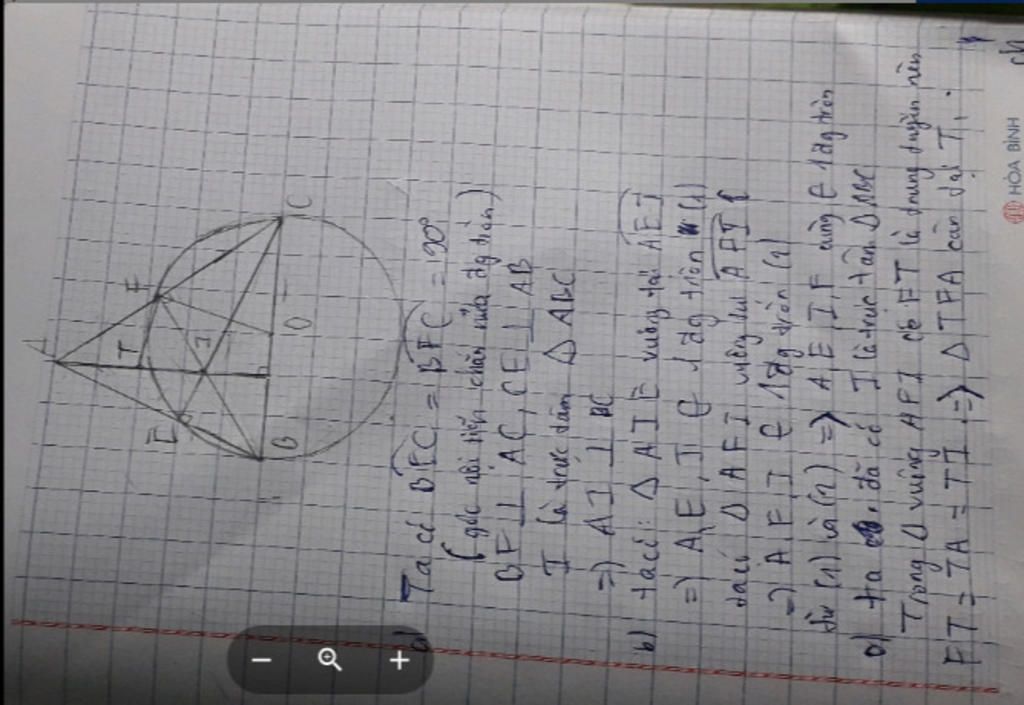 A
E
T
F
I
B
O
C
a) Ta có BEC = BFC = 90°
(góc nội tiếp chắn nửa đg tròn)
BF ⊥ AC, CE ⊥ AB
I là trực tâm Δ ABC
=> AI ⊥ BC
b) ta có: Δ AIE vuông tại AEI
=> A, E, I ∈ 1 đg tròn (1)
ta có Δ AFI vuông tại AFI
=> A F I ∈ 1 đg tròn (2)
từ (1) và (2) => A, E, I, F cùng ∈ 1 đg tròn
c) ta đã có I là trực tâm Δ ABC
Trong Δ vuông AFI có FT là trung tuyến nên
FT = TA = TI => Δ TFA cân tại T.
HÒA BÌNH